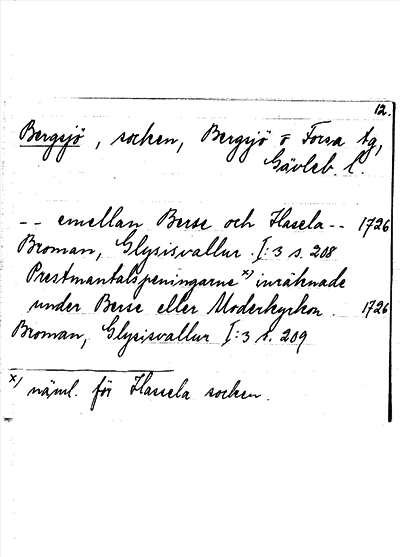 12.
Bergsjö, socken, Bergsjö o Forsa tg,
Gävleb. l.
-- emellan Berse och Hasela -- 1726
Broman, Glysisvallur. I:3 s. 208
Prestmantalspeningarne x) inräknade
under Berse eller Moderkyrkon. 1726
Broman, Glysisvallur I:3 s. 209
x) näml. för Hassela socken.